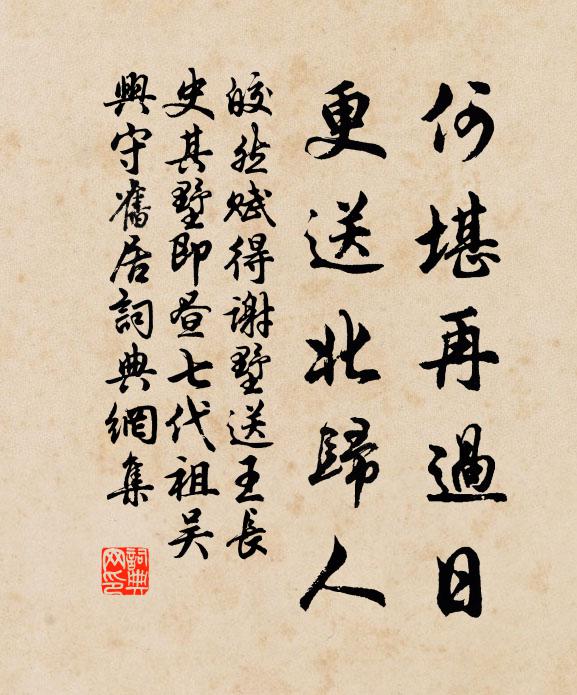 何堪再過日
更送北歸人
皎然賦得謝墅送王長
史其墅即昼七代祖吴
興守舊居詞典網集
詞典网印